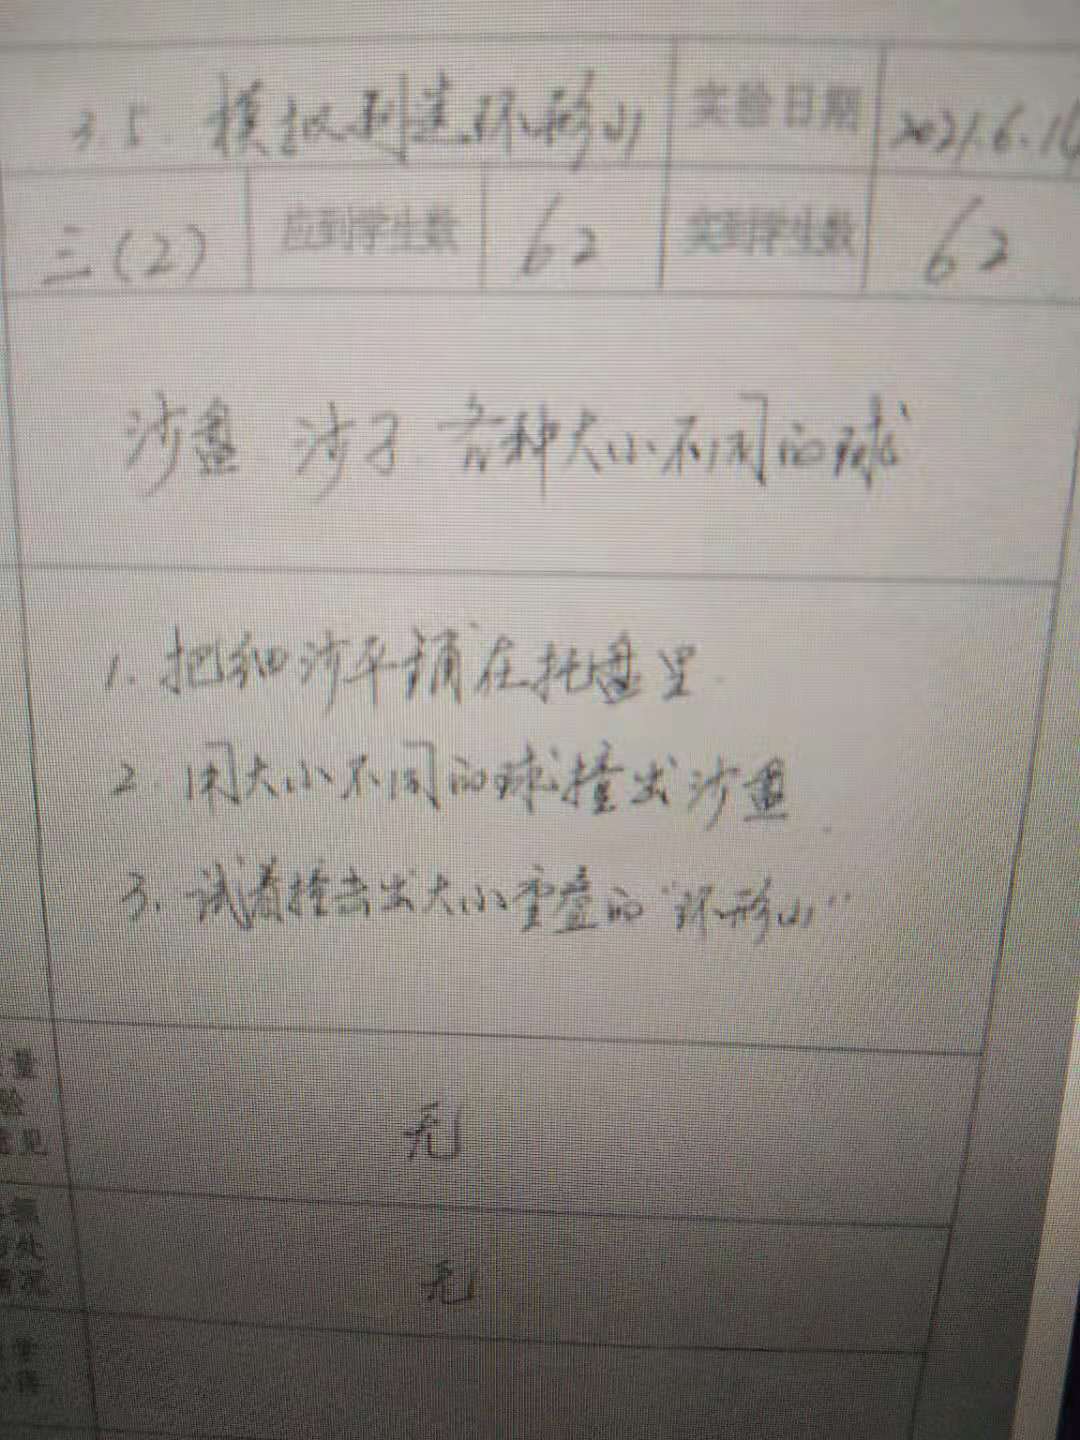 3.5 模拟制造环形山 实验日期 2021.6.16
三(2) 应到学生数 62 实到学生数 62
沙盘 沙子 各种大小不同的球
1. 把细沙平铺在托盘里
2. 用大小不同的球撞出沙盘
3. 试着撞击出大小重叠的"环形山"
量
验
意见
无
处
情况
无
学